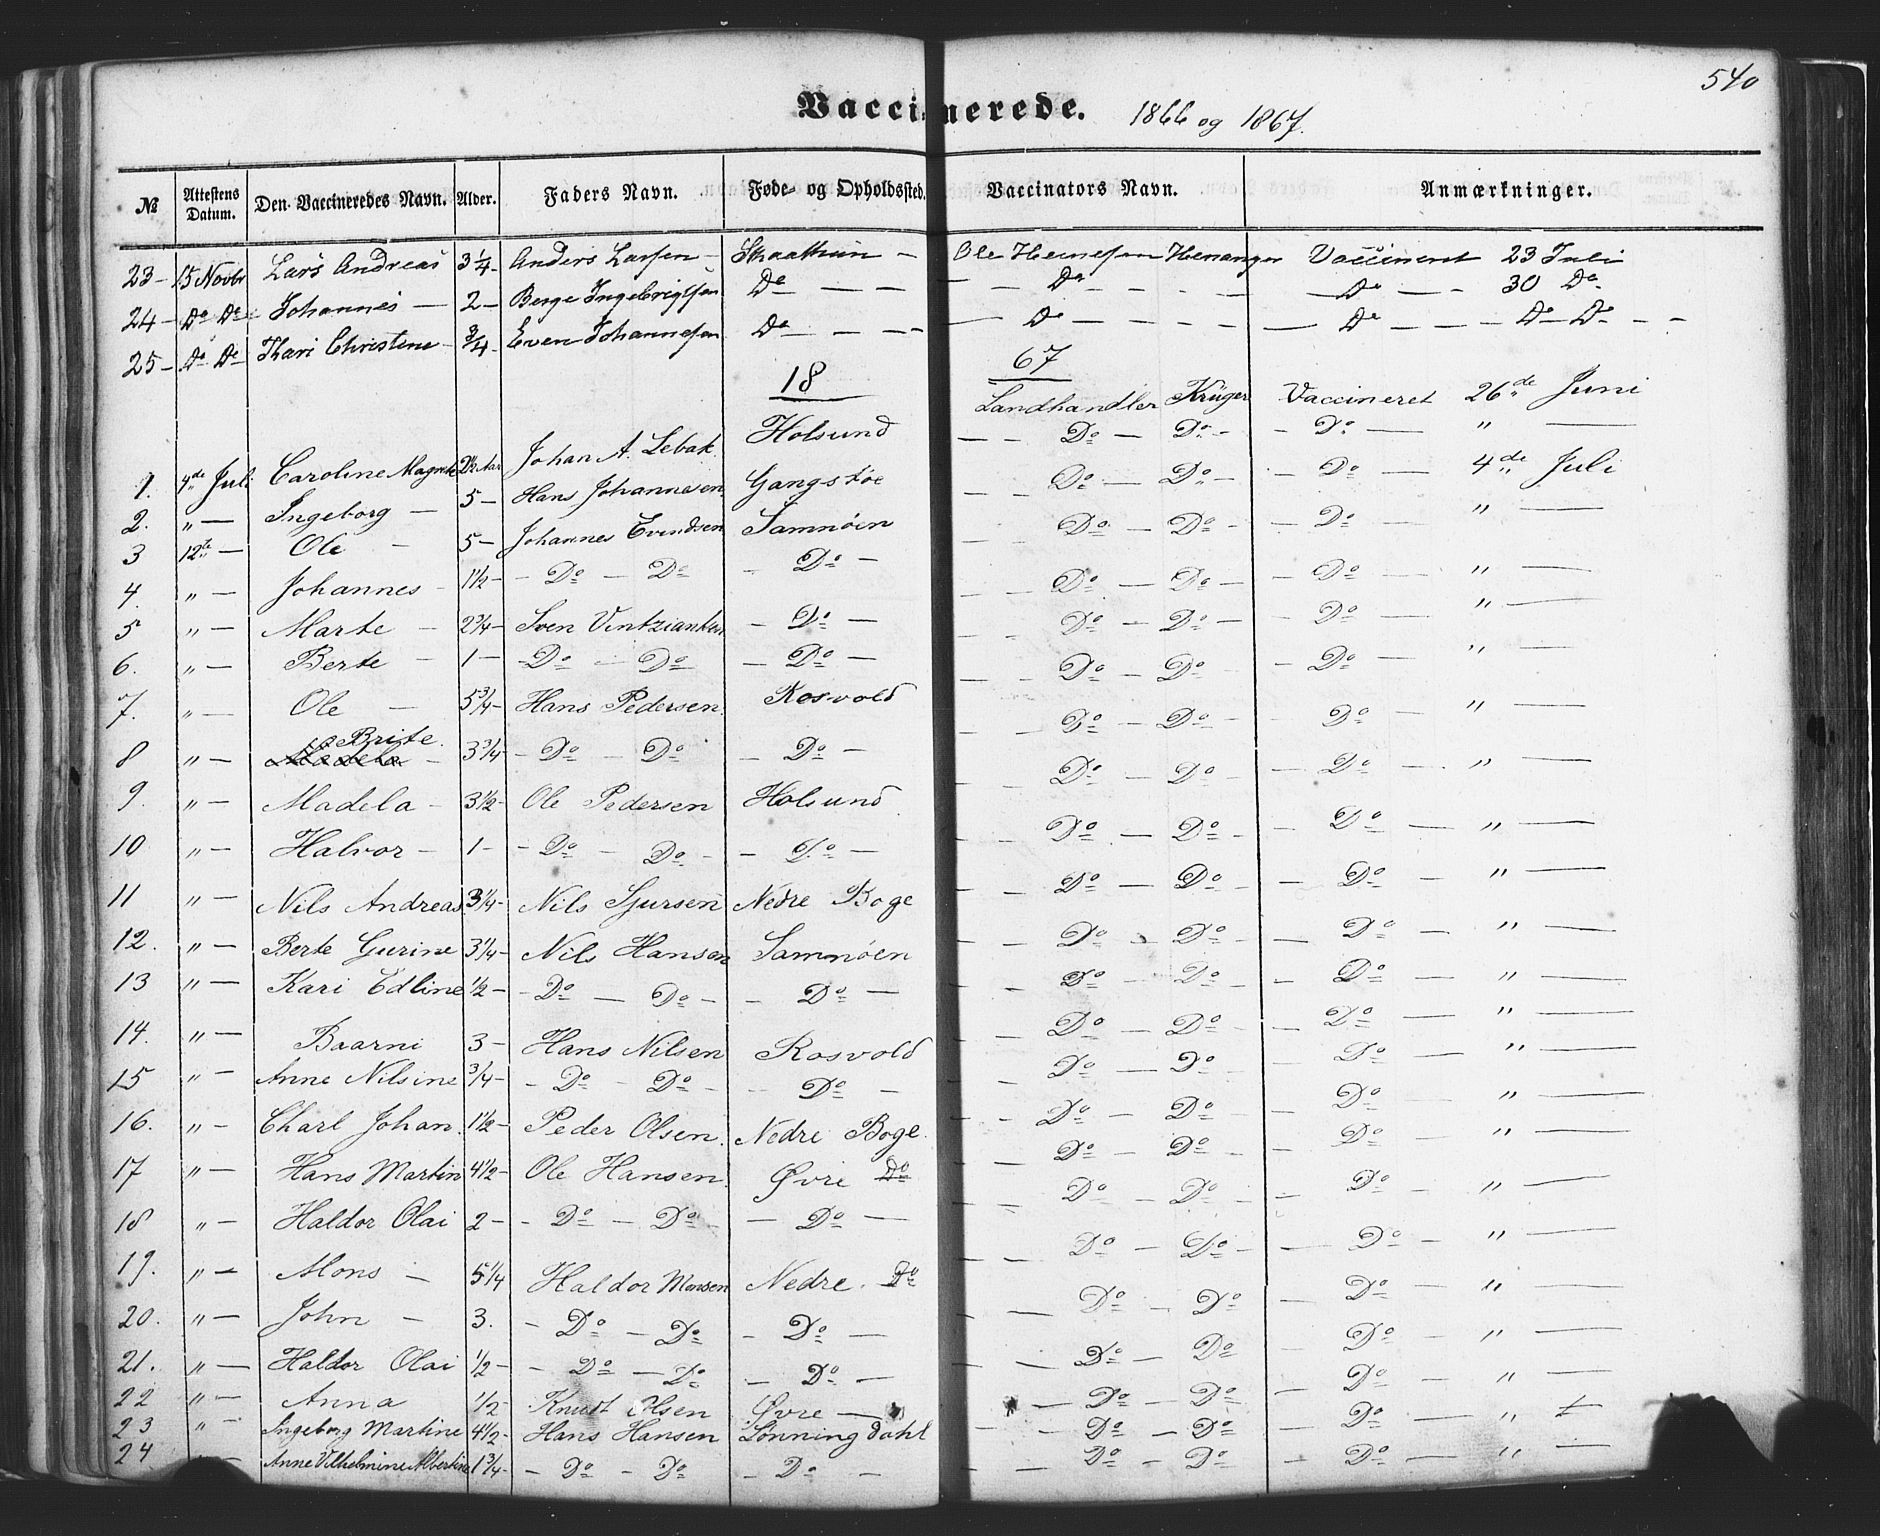 540
Vaccinerede. 1866 og 1867.
№ Attestens Datum. Den Vaccineredes Navn. Alder. Faders Navn. Føde- og Opholdssted. Vaccinators Navn. Anmærkninger.
23 - 15 Novbr Lars Andreas 3 1/4 - Anders Larsen - - Ole Henanger Vaccineret 23 Juli
24 - Do Do Johannes - 2 - Berge Ingebrigtsen Do - - - - Do - - - - Do - - 30 Do
25 - Do Do Kari Christene - 3/4 - Even Johannesen Do - - - - Do - - - - - Do - - - Do Do - -
18 67
1. 4de Juli Caroline Magrete Aar Johan A. Lebak Holsund Landhandler Krüger Vaccineret 26de Juni
2. " - Ingeborg - 5 - Hans Johannesen Gangstøe - - Do - Do - - Do - " -
3 12te - Ole - 5 - Johannes Evindsen Samnøen - - Do - Do - - Do - 4de Juli
4. " - Johannes - 1 1/2 - - Do - Do - Do - - - Do - Do - - Do - " -
5 " - Marte - 2 3/4 - Sven - Do - - - Do - Do - - Do - " -
6. " - Berte - 1 - - Do - Do - Do - - - Do - Do - - Do - " -
7. " - Ole - 5 3/4 - Hans Pedersen Rosvold - - Do - Do - - Do - " -
8 " - Brite. Madela - 3 3/4 - - Do - Do - Do - - - Do - Do - - Do - " -
9. " - Madela - 3 1/2 - Ole Pedersen Holsund - - Do - Do - - Do - " -
10 " - Halvor - 1 - - Do - Do - - Do - - - Do - Do - - Do - " -
11 " - Nils Andreas 3 1/4 - Nils Sjursen Nedre Boge - - Do - Do - - Do - " -
12. " - Berte Gurine 3 1/4 - Nils Hansen Samnøen - - Do - Do - - Do - " -
13 " - Kari Edline 1/2 - - Do - Do - - Do - - - Do - Do - - Do - " -
14. " - Baarni 3 - Hans Nilsen Rosvold - - Do - Do - - Do - " -
15 " - Anne Nilsine 3/4 - - Do - Do - - Do - - - Do - Do - - Do - " -
16. " - Charl Johan. 1 1/2 - Peder Olsen. Nedre Boge. - - Do - Do - - Do - " -
17 " - Hans Martin 4 1/2 - Ole Hansen. Øvre Do - - Do - Do - - Do - " -
18 " - Haldor Olai 2 - - Do - Do - - Do - - - Do - Do - - Do - " -
19. " - Mons - 5 1/4 Haldor Monsen Nedre. Do - - Do - Do - - Do - " -
20. " - John - 3. - Do - Do - Do - - - Do - Do - - Do - " -
21. " - Haldor Olai 1/2 - - Do - Do - Do - - - Do - Do - - Do - " -
22 " - Anna 1/2 - Knudt Olsen Øvre - - - Do - Do - - Do - " -
23 " - Ingeborg Martine 4 1/2 - Hans Hansen Lønningdahl - - Do - Do - - Do - "
24 Anne Vilhelmine Albertine 1 3/4 - - Do - Do - Do - - - Do - Do - - Do - " -